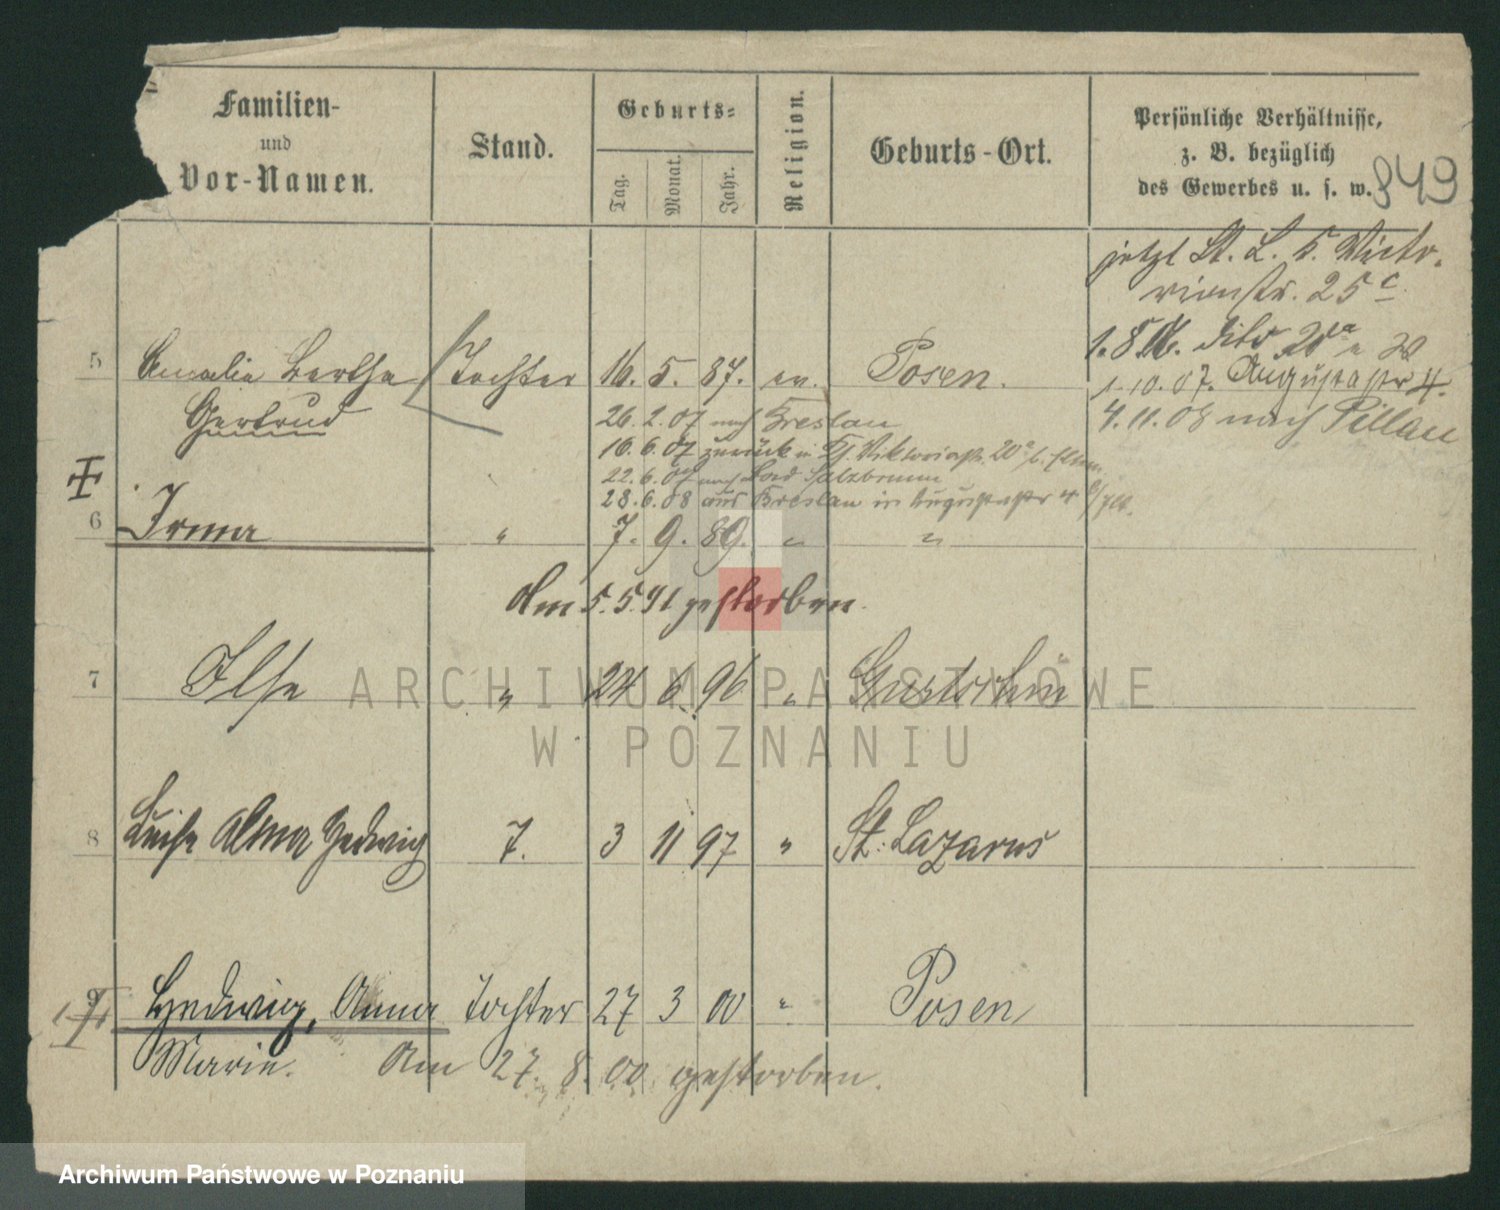 Familien-
und
Vor-Namen.
Stand.
Geburts-
Tag.
Monat.
Jahr.
Religion.
Geburts-Ort.
Persönliche Verhältnisse,
z. B. bezüglich
des Gewerbes u. s. w.
849
jetzt St. L. Victo-
rienstr. 25 c
5 Amalie Bertha Tochter 16. 5. 87. ev. Posen.
Gertrud
1.10.07. Augustastr 4.
4.11.08 nach Pillau
26. 2. 07 nach Breslau
16. 6. 07 zurück in Viktoriastr. 20a
22. 6. 07 nach Bad Salzbrunn
28. 6. 08 aus Breslau in Augustastr 4
6 Irma " 7. 9. 89. " "
Am 5. 5. 91 gestorben.
7 Ilse " 24 6 96 " Gurtschin
8 Luise Alma Hedwig T. 3 11 97 " St. Lazarus
9 Hedwig, Anna Tochter 27 3 00 " Posen
Marie. Am 27. 8. 00 gestorben.
ARCHIWUM PAŃSTWOWE
W POZNANIU
Archiwum Państwowe w Poznaniu